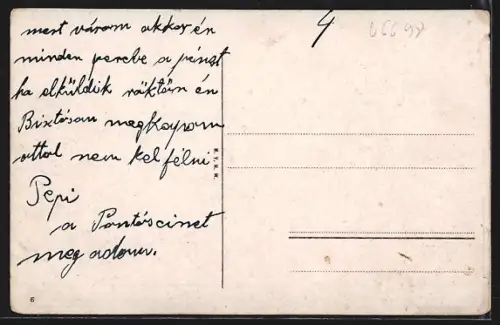 mert várom akkor én
minden percbe a pénzt
ha elküldik röktöm én
Bixtosan megkapom
attol nem kel félni
Pepi
a Pontóscimet
meg adom.
4
6